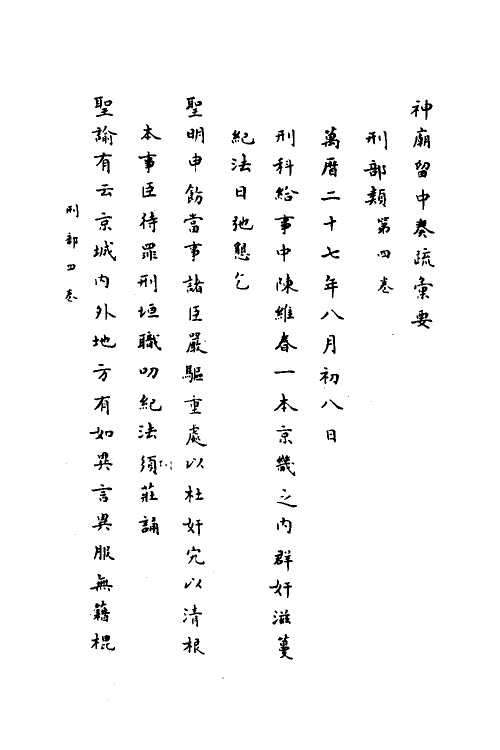 神廟留中奏疏彙要
刑部類第四卷
萬曆二十七年八月初八日
刑科給事中陳維春一本京畿之內群奸滋蔓
紀法日弛懇乞
聖明申飭當事諸臣嚴驅重處以杜奸宄以清根
本事臣待罪刑垣職叨紀法須莊誦
聖諭有云京城內外地方有如異言異服無籍棍
刑部四卷